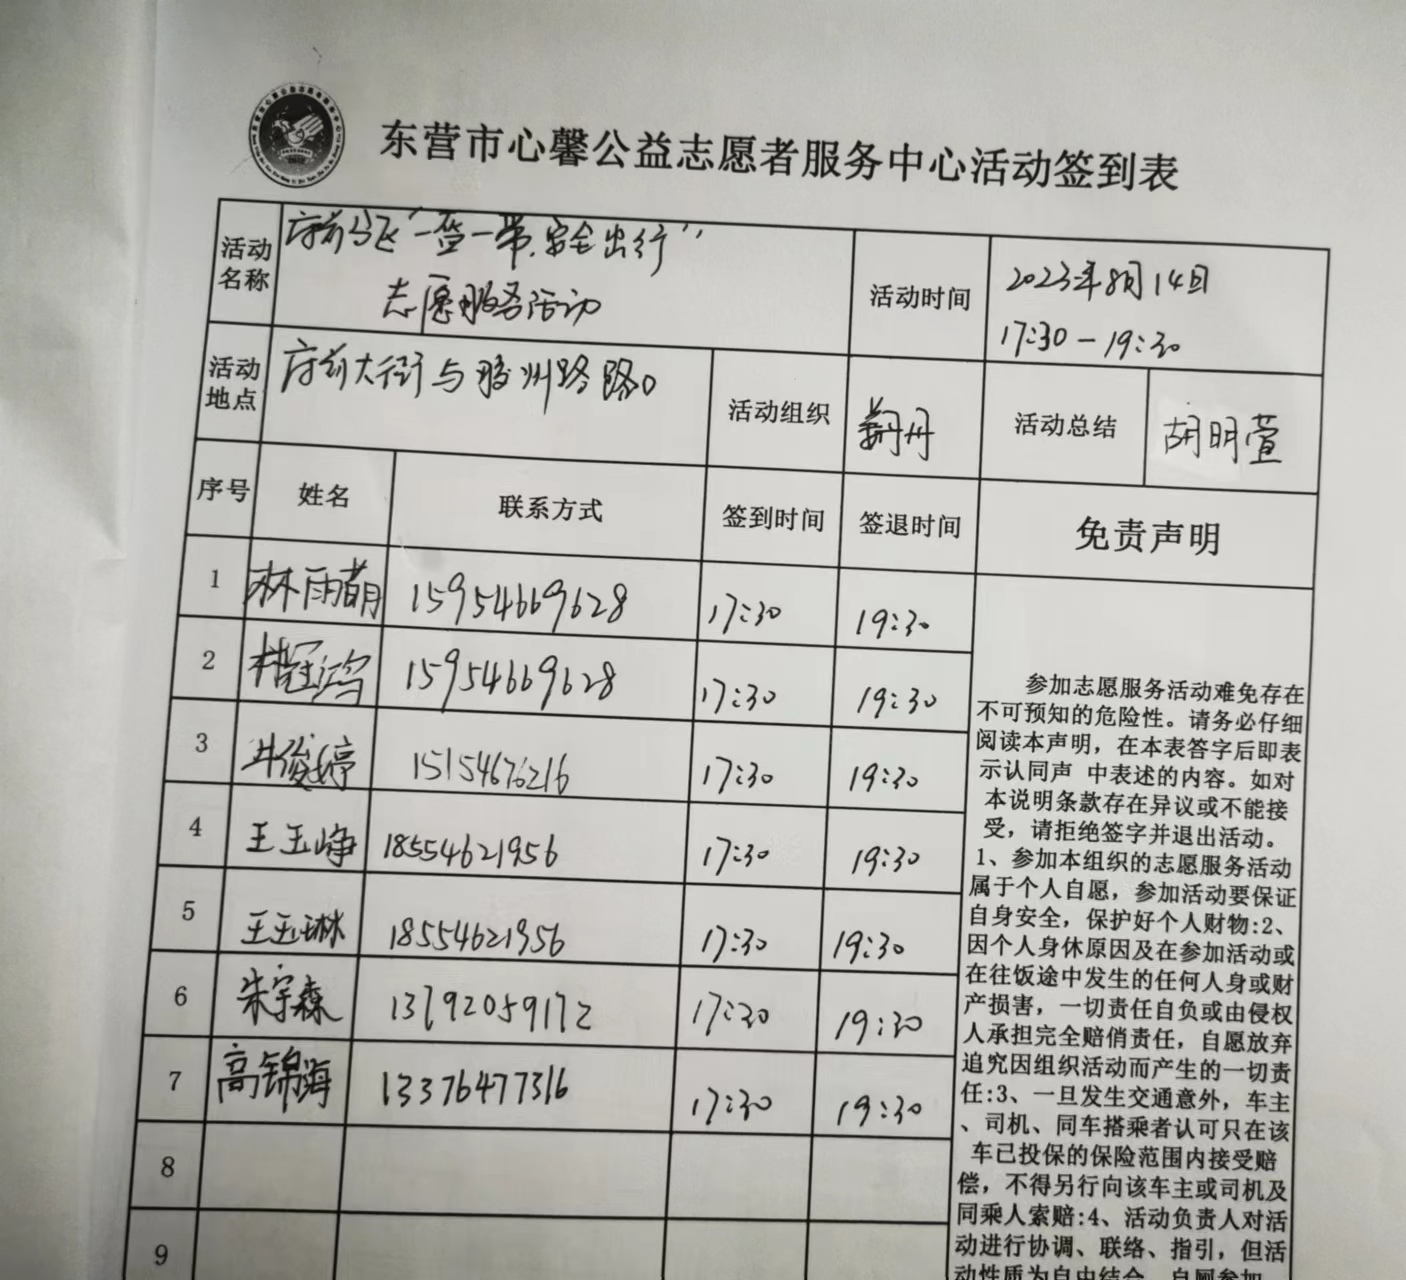 东营市心馨公益志愿者服务中心活动签到表
活动名称 府前马巡"一盔一带.安全出行"
志愿服务活动
活动时间 2023年8月14日
17:30-19:30
活动地点 府前大街与胶州路路口
活动组织 丹
活动总结 胡明萱
序号 姓名 联系方式 签到时间 签退时间 免责声明
1 林雨萌 15954669628 17:30 19:30
2 林冠鸿 15954669628 17:30 19:30
3 井俊婷 15154676216 17:30 19:30
4 王玉峥 18554621956 17:30 19:30
5 王玉琳 18554621956 17:30 19:30
6 朱宇森 13792059172 17:30 19:30
7 高锦海 13376477316 17:30 19:30
8
9
参加志愿服务活动难免存在
不可预知的危险性。请务必仔细
阅读本声明，在本表答字后即表
示认同声 中表述的内容。如对
本说明条款存在异议或不能接
受，请拒绝签字并退出活动。
1、参加本组织的志愿服务活动
属于个人自愿，参加活动要保证
自身安全，保护好个人财物:2、
因个人身休原因及在参加活动或
在往饭途中发生的任何人身或财
产损害，一切责任自负或由侵权
人承担完全赔俏责任，自愿放弃
追究因组织活动而产生的一切责
任:3、一旦发生交通意外，车主
、司机、同车搭乘者认可只在该
车已投保的保险范围内接受赔
偿，不得另行向该车主或司机及
同乘人索赔:4、活动负责人对活
动进行协调、联络、指引，但活
动性质为自由结合，自愿参加